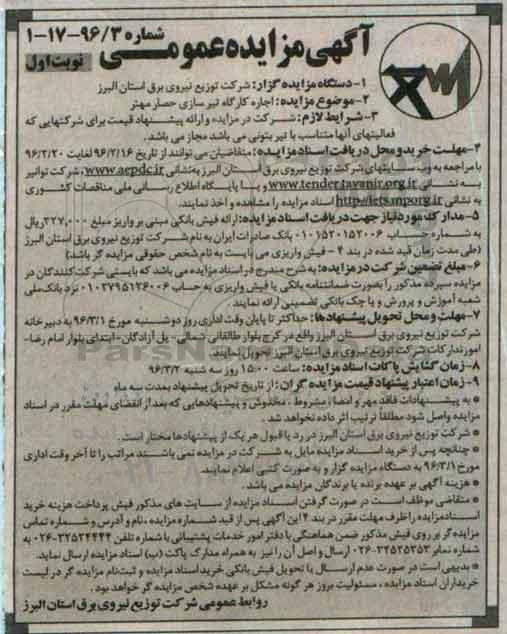 شماره ۹۶/۳-۱۷-۱
آگهی مزایده عمومی
نوبت اول
۱- دستگاه مزایده گزار: شرکت توزیع نیروی برق استان البرز
۲- موضوع مزایده: اجاره کارگاه تیر سازی حصار مهتر
۳- شرایط لازم: شرکت در مزایده و ارائه پیشنهاد قیمت برای شرکتهایی که
فعالیتهای آنها متناسب با تیر بتونی می باشد مجاز می باشد.
۴- مهلت خرید و محل دریافت اسناد مزایده: متقاضیان می توانند از تاریخ ۹۶/۲/۱۶ لغایت ۹۶/۲/۲۰
با مراجعه به وب سایتهای شرکت توزیع نیروی برق استان البرز به نشانی www.aepdc.ir، شرکت توانیر
به نشانی www.tender.tavanir.org.ir و یا پایگاه اطلاع رسانی ملی مناقصات کشوری
به نشانی http://iets.mporg.ir اسناد مزایده را مشاهده و اخذ نمایند.
۵- مدارک مورد نیاز جهت دریافت اسناد مزایده: ارائه فیش بانکی مبنی بر واریز مبلغ ۳۲۷,۰۰۰ ریال
به شماره حساب ۰۱۰۱۵۲۰۱۵۲۰۰۶ بانک صادرات ایران به نام شرکت توزیع نیروی برق استان البرز
(طی مدت زمان قید شده در بند ۴ - فیش واریزی می بایست به نام شخص حقوقی مزایده گر باشد)
۶- مبلغ تضمین شرکت در مزایده: به شرح مندرج در اسناد مزایده می باشد که بایستی شرکت کنندگان در
مزایده سپرده مذکور را بصورت ضمانتنامه بانکی یا فیش واریزی به حساب ۰۱۰۲۷۹۵۱۲۶۰۰۶ نزد بانک ملی
شعبه آموزش و پرورش و یا چک بانکی تضمینی ارائه نمایند.
۷- مهلت و محل تحویل پیشنهادها: حداکثر تا پایان وقت اداری روز دوشنبه مورخ ۹۶/۳/۱ به دبیرخانه
شرکت توزیع نیروی برق استان البرز واقع در کرج بلوار طالقانی شمالی- پل آزادگان- ابتدای بلوار امام رضا-
امور تدارکات شرکت توزیع نیروی برق استان البرز تحویل نمایند.
۸- زمان گشایش پاکات اسناد مزایده: ساعت ۱۵:۰۰ روز سه شنبه ۹۶/۳/۲
۹- زمان اعتبار پیشنهاد قیمت مزایده گران: از تاریخ تحویل پیشنهاد بمدت سه ماه
* به پیشنهادات فاقد مهر و امضاء مشروط، مخدوش و پیشنهادهایی که بعد از انقضای مهلت مقرر در اسناد
مزایده واصل شود مطلقاً ترتیب اثر داده نخواهد شد.
* شرکت توزیع نیروی برق استان البرز در رد یا قبول هر یک از پیشنهادها مختار است.
* چنانچه پس از خرید اسناد مزایده مایل به شرکت در مزایده نمی باشند مراتب را تا آخر وقت اداری
مورخ ۹۶/۳/۱ به دستگاه مزایده گزار و به صورت کتبی اعلام نمایند.
* هزینه آگهی بر عهده برنده یا برندگان مزایده می باشد.
* متقاضی موظف است در صورت گرفتن اسناد مزایده از سایت های مذکور فیش پرداخت هزینه خرید
اسناد مزایده را ظرف مهلت مقرر در بند ۴ این آگهی پس از قید شماره مزایده، نام و آدرس و شماره تماس
مزایده گر بر روی فیش مذکور ضمن هماهنگی با دفتر امور خدمات پشتیبانی با شماره تلفن ۳۲۵۲۴۴۴۴-۰۲۶ به
شماره نمابر ۳۲۵۲۵۲۵۳-۰۲۶ ارسال و اصل آن را نیز به همراه مدارک پاکت (ب) اسناد مزایده ارسال نماید.
* بدیهی است در صورت عدم ارسال یا تحویل فیش بانکی خرید اسناد مزایده و ثبت نام مزایده گر در لیست
خریداران اسناد مزایده، مسئولیت بروز هر گونه مشکل بر عهده شخص مزایده گر خواهد بود.
روابط عمومی شرکت توزیع نیروی برق استان البرز